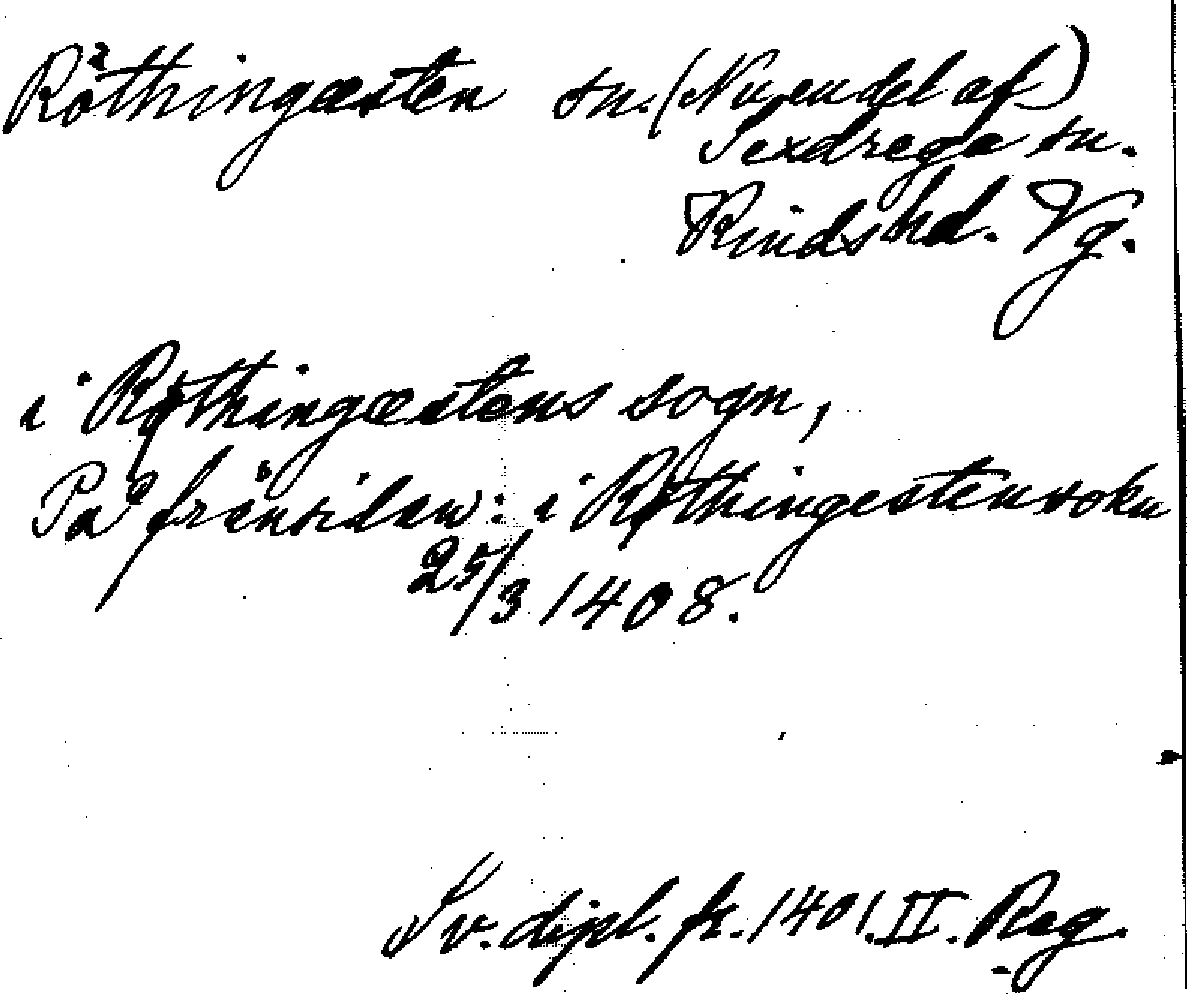 Röthingæsten sn. (Nu en del af)
Sexdrega sn.
Kinds hd. Vg.
i Røthingæstens sogn,
På frånsidan: i Røthingestensokn
25/3 1408.
Sv. dipl. fr. 1401. II. Reg.